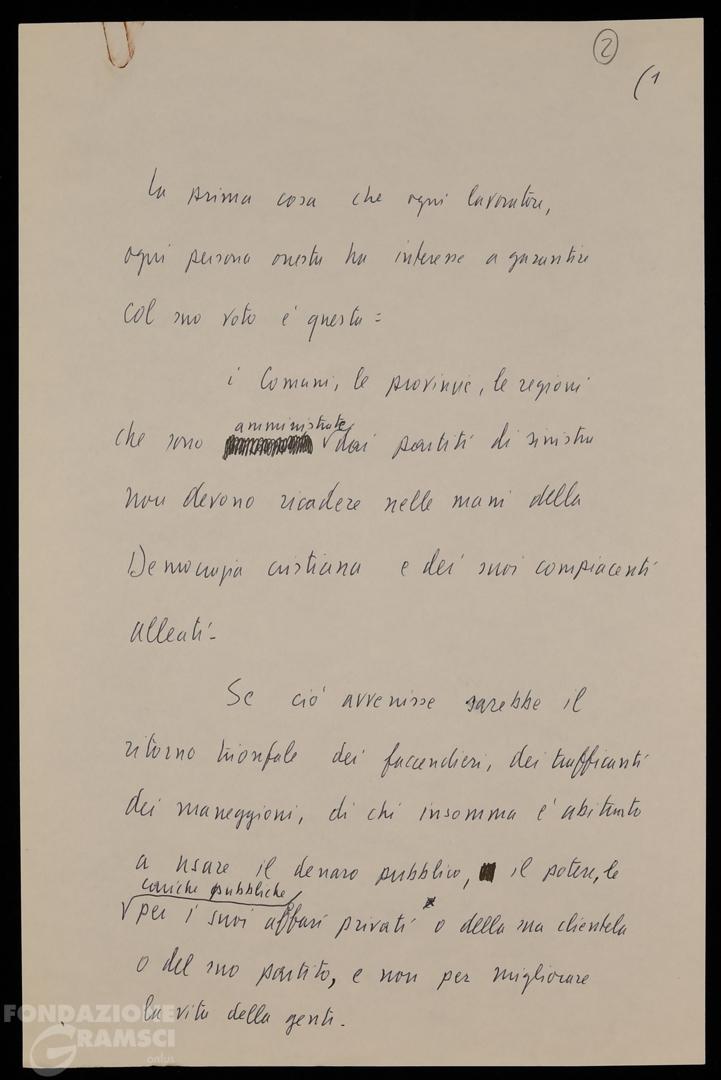 2
(1
La prima cosa che ogni lavoratore,
ogni persona onesta ha interesse a garantire
col suo voto è questa:
i Comuni, le provincie, le regioni
che sono amministrate dai partiti di sinistra
non devono ricadere nelle mani della
Democrazia cristiana e dei suoi compiacenti
alleati.
Se ciò avvenisse sarebbe il
ritorno trionfale dei faccendieri, dei trafficanti
dei maneggioni, di chi insomma è abituato
a usare il denaro pubblico, il potere, le
cariche pubbliche
per i suoi affari privati o della sua clientela
o del suo partito, e non per migliorare
la vita della gente.
FONDAZIONE
GRAMSCI
onlus